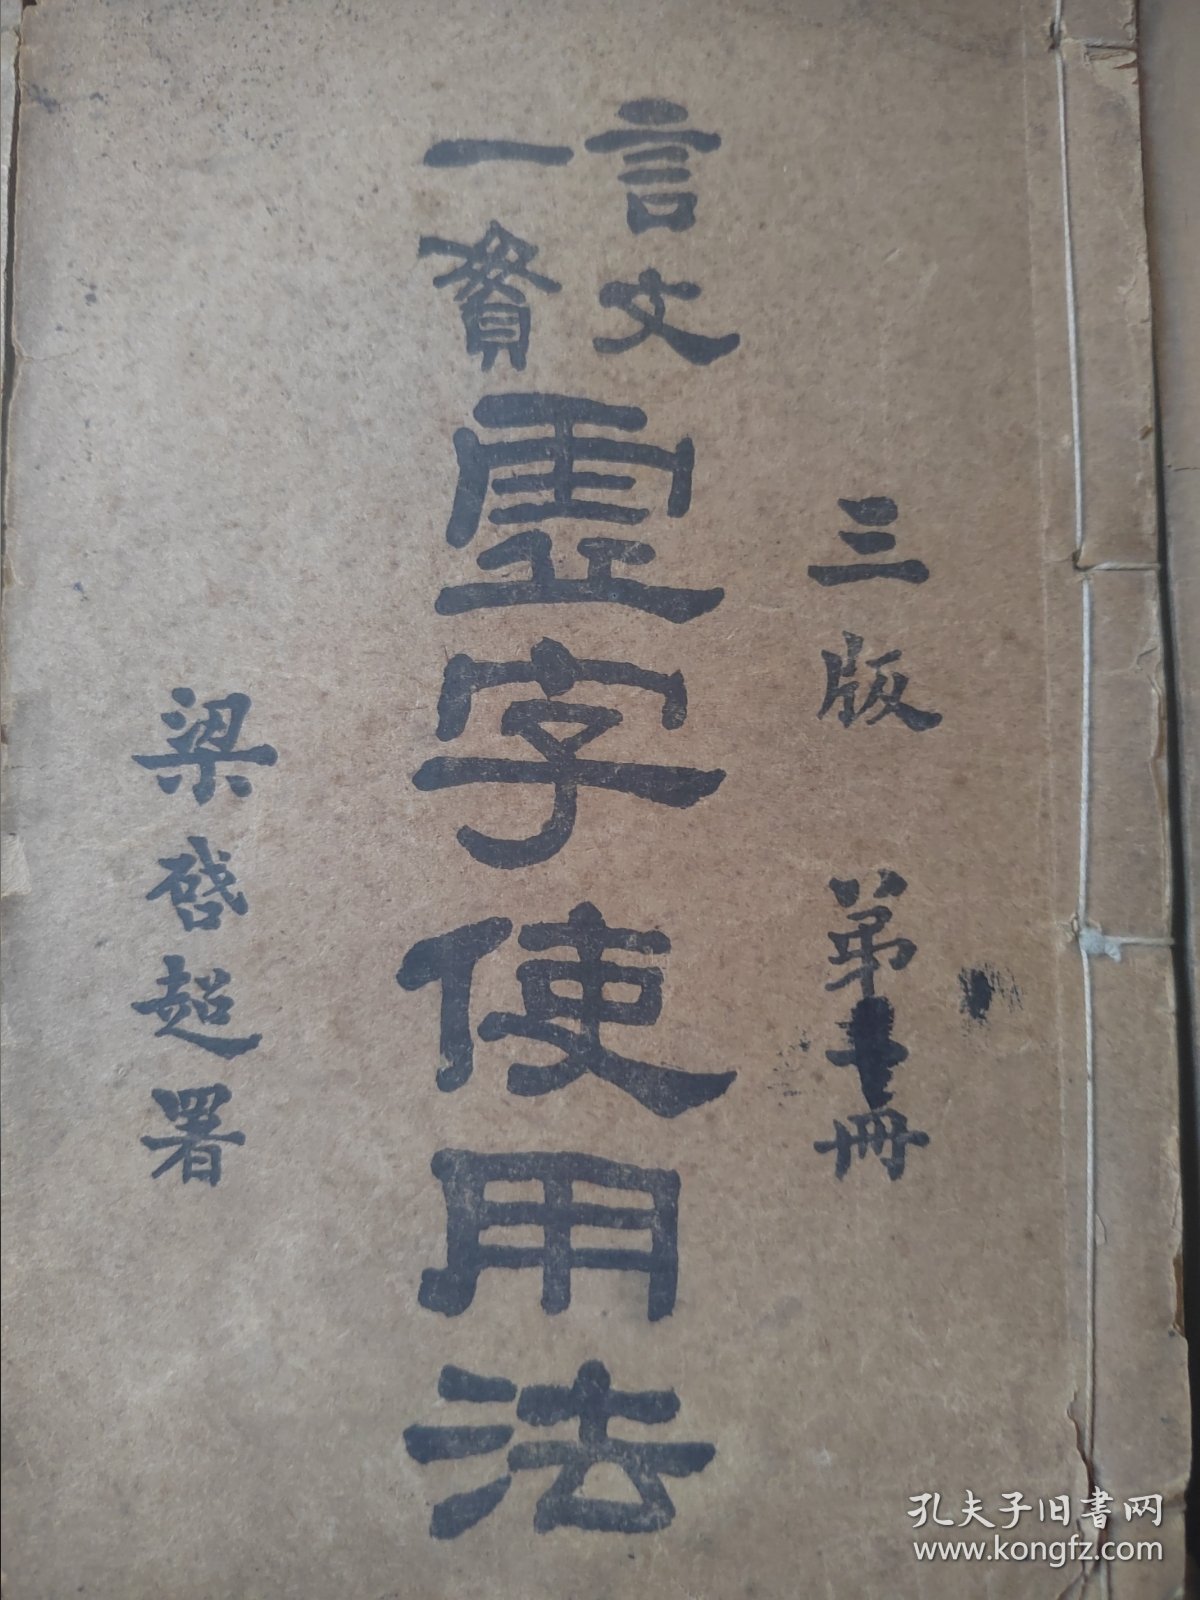 三版 第 冊
言文
一貫
虛字使用法
梁啓超署
孔夫子旧书网
www.kongfz.com